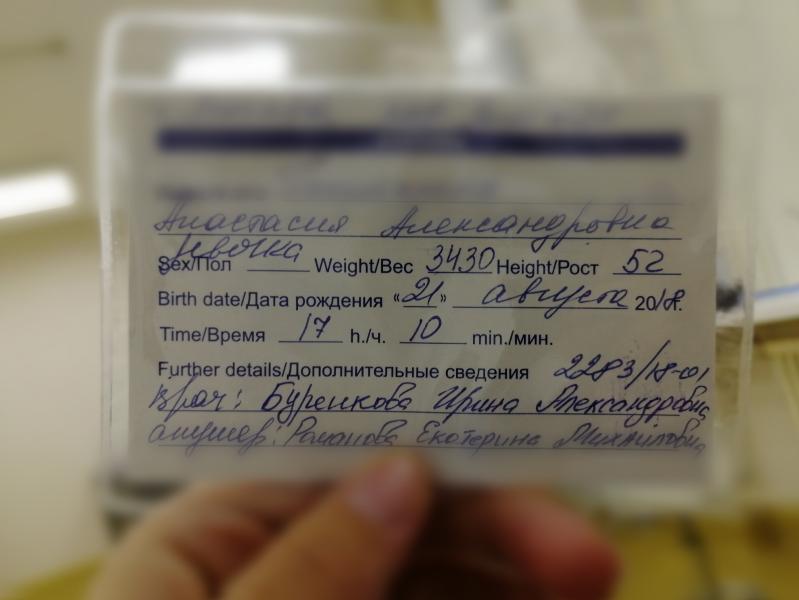 Анастасия Александровна
Sex/Пол девочка Weight/Вес 3430 Height/Рост 52
Birth date/Дата рождения «21» августа 2018.
Time/Время 17 h./ч. 10 min./мин.
Further details/Дополнительные сведения 2283/18-01
Врач: Буренкова Ирина Александровна
акушер: Романова Екатерина Михайловна